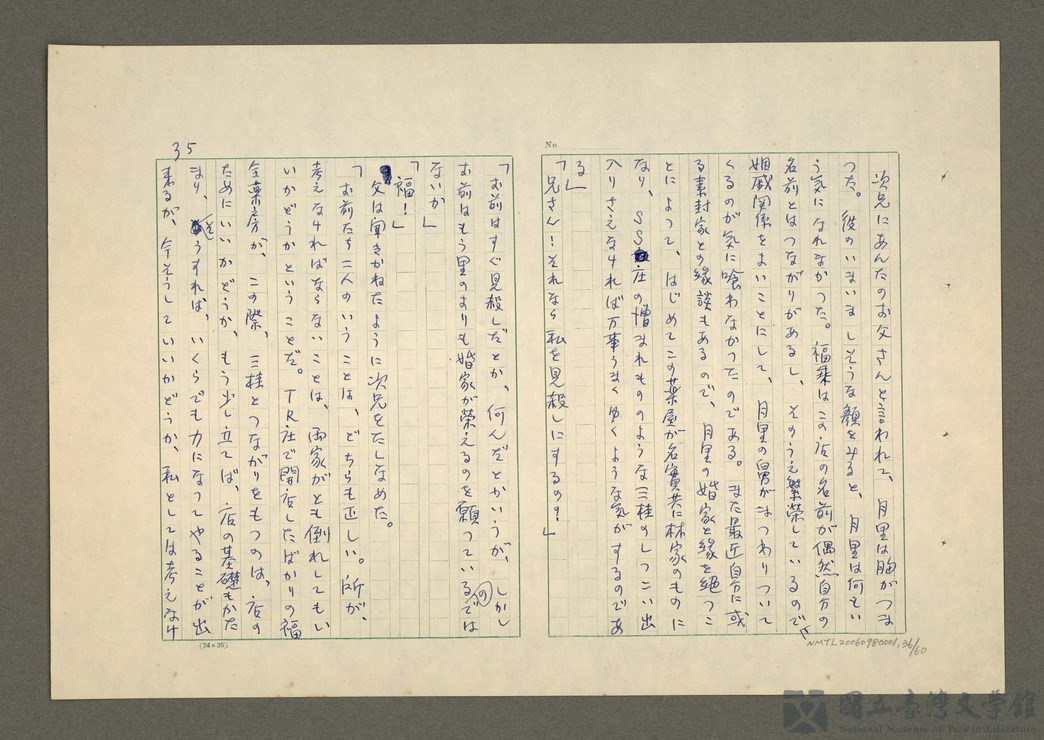 次兄にあんたのお父さんと言われて、月里は胸がつま
つた。彼のいまいましそうな顔をみると、月里は何もい
う気になれなかつた。福乗はこの店の名前が偶然自分の
名前とはつながりがあるし、そのうえ繁榮しているので、
姻戚関係をよいことにして、月里の舅がまつわりついて
くるのが気に喰わなかつたのである。また最近自分に或
る素封家との縁談もあるので、月里の婚家と縁を絕つこ
とによつて、はじめてこの薬屋が名實共に林家のものに
なり、SS庄の憎まれもののような三桂のしつこい出
入りさえなければ万事うまくゆくような気がするのであ
る」
「兄さん！それなら私を見殺しにするの？」
No.
35
「お前はすぐ見殺しだとか、何んだとかいうが、しかし
お前はもう里のよりも婚家が榮えるのを願つているのでは
ないか」
「福！」
父は聞きかねたように次兄をたしなめた。
「お前たち二人のいうことは、どちらも正しい。所が、
考えなければならないことは、両家がとも倒れしてもい
いかどうかということだ。TR庄で開店したばかりの福
全薬房が、この際、三桂とつながりをもつのは、店の
ためにいいかどうか、もう少し立てば、店の基礎もかた
まり、そうすれば、いくらでも力になつてやることが出
来るが、今そうしていいかどうか、私としては考えなけ
(24×25)
NMTL20060980001,36/60
國立臺灣文学館
National Museum of Taiwan Literature